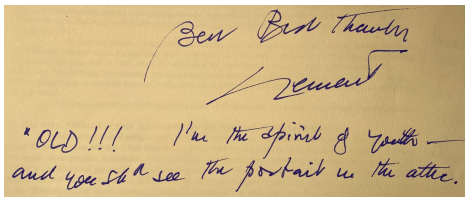 Best Thanks
"OLD!!! I'm the spirit of youth —
and you shd see the portrait in the attic.